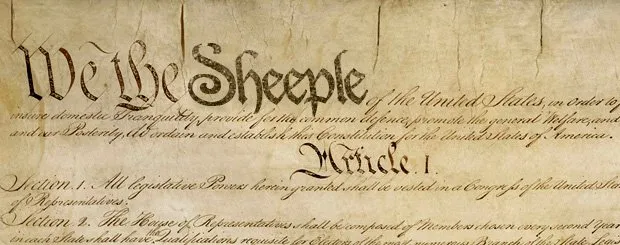 We the Sheeple of the United States, in Order to
insure domestic Tranquility, provide for the common defence, promote the general Welfare, and
and our Posterity, do ordain and establish this Constitution for the United States of America.
Article. I.
Section. 1. All legislative Powers herein granted shall be vested in a Congress of the United
of Representatives.
Section. 2. The House of Representatives shall be composed of Members chosen every second Year
in each State shall have the Qualifications requisite for Electors of the most numerous Branch of the State